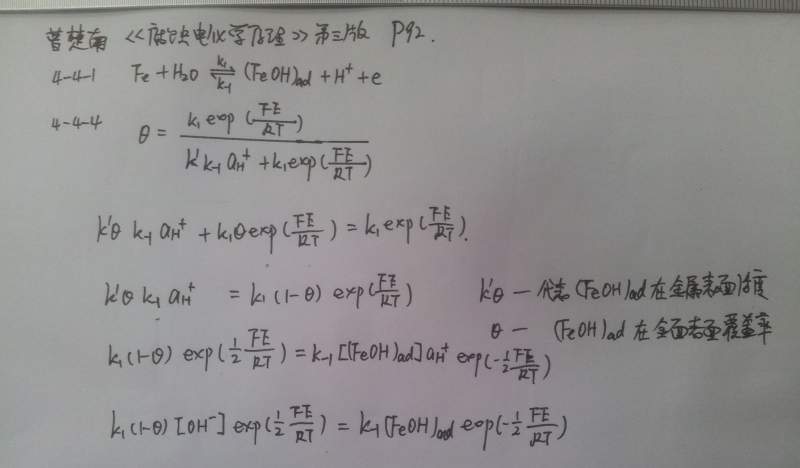 曹楚南《腐蚀电化学原理》第三版 P92.
4-4-1 Fe + H₂O ⇌ (k₁, k₋₁) (FeOH)ad + H⁺ + e
4-4-4 θ = k₁ exp(FE/RT) / (k' k₋₁ aH⁺ + k₁ exp(FE/RT))
k'θ k₋₁ aH⁺ + k₁θ exp(FE/RT) = k₁ exp(FE/RT).
k'θ k₁ aH⁺ = k₁ (1-θ) exp(FE/RT) k'θ — 代表 (FeOH)ad 在金属表面浓度
θ — (FeOH)ad 在金面表面覆盖率
k₁ (1-θ) exp(1/2 FE/RT) = k₋₁ [(FeOH)ad] aH⁺ exp(-1/2 FE/RT)
k₁ (1-θ) [OH⁻] exp(1/2 FE/RT) = k₋₁ (FeOH)ad exp(-1/2 FE/RT)